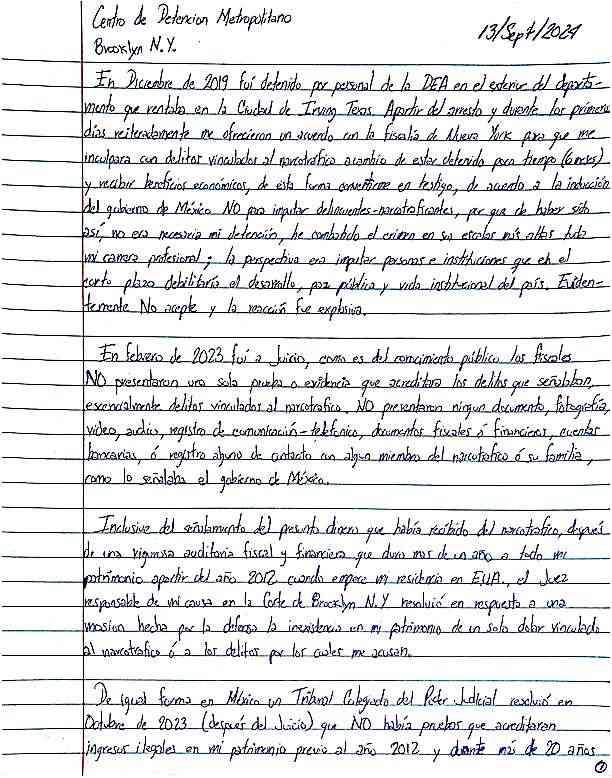 Centro de Detencion Metropolitano
13/Sept/2024
Brooklyn N.Y.
En Diciembre de 2019 fui detenido por personal de la DEA en el exterior del departa-
mento que rentaba en la Ciudad de Irving Texas. Apartir del arresto y durante los primeros
días reiteradamente me ofrecieron un acuerdo con la fiscalía de Nueva York para que me
inculpara con delitos vinculados al narcotráfico acambio de estar detenido poco tiempo (6 meses)
y recibir beneficios económicos, de esta forma convertirme en testigo, de acuerdo a la inducción
del gobierno de México NO para imputar delincuentes-narcotraficantes, por que de haber sido
así, no era necesaria mi detención, he combatido el crimen en su escalas más altas toda
mi carrera profesional; la perspectiva era imputar personas e instituciones que en el
corto plazo debilitaría el desarrollo, paz pública y vida institucional del país. Eviden-
temente No acepte y la reacción fue explosiva.
En febrero de 2023 fui a Juicio, como es del conocimiento público los fiscales
NO presentaron una sola prueba o evidencia que acreditara los delitos que señalaban,
escencialmente delitos vinculados al narcotrafico, NO presentaron ningun documento, fotografía,
video, audio, registro de comunicación-telefónico, documentos fiscales ó financieros, cuentas
bancarias, ó registro alguno de contacto con algun miembro del narcotrafico ó su familia,
como lo señalaba el gobierno de México.
Inclusive del señalamiento del presunto dinero que había recibido del narcotrafico, después
de una rigurosa auditoria fiscal y financiera que duro mas de un año a todo mi
patrimonio apartir del año 2012 cuando empece mi residencia en EUA., el Juez
responsable de mi causa en la Corte de Brooklyn N.Y resolvió en respuesta a una
mosion hecha por la defensa la inexistencia en mi patrimonio de un solo dolar vinculado
al narcotrafico ó a los delitos por los cuales me acusan.
De igual forma en México un Tribunal Colegiado del Poder Judicial resolvió en
Octubre de 2023 (después del Juicio) que NO había pruebas que acreditaran
ingresos ilegales en mi patrimonio previo al año 2012 y durante más de 20 años
1